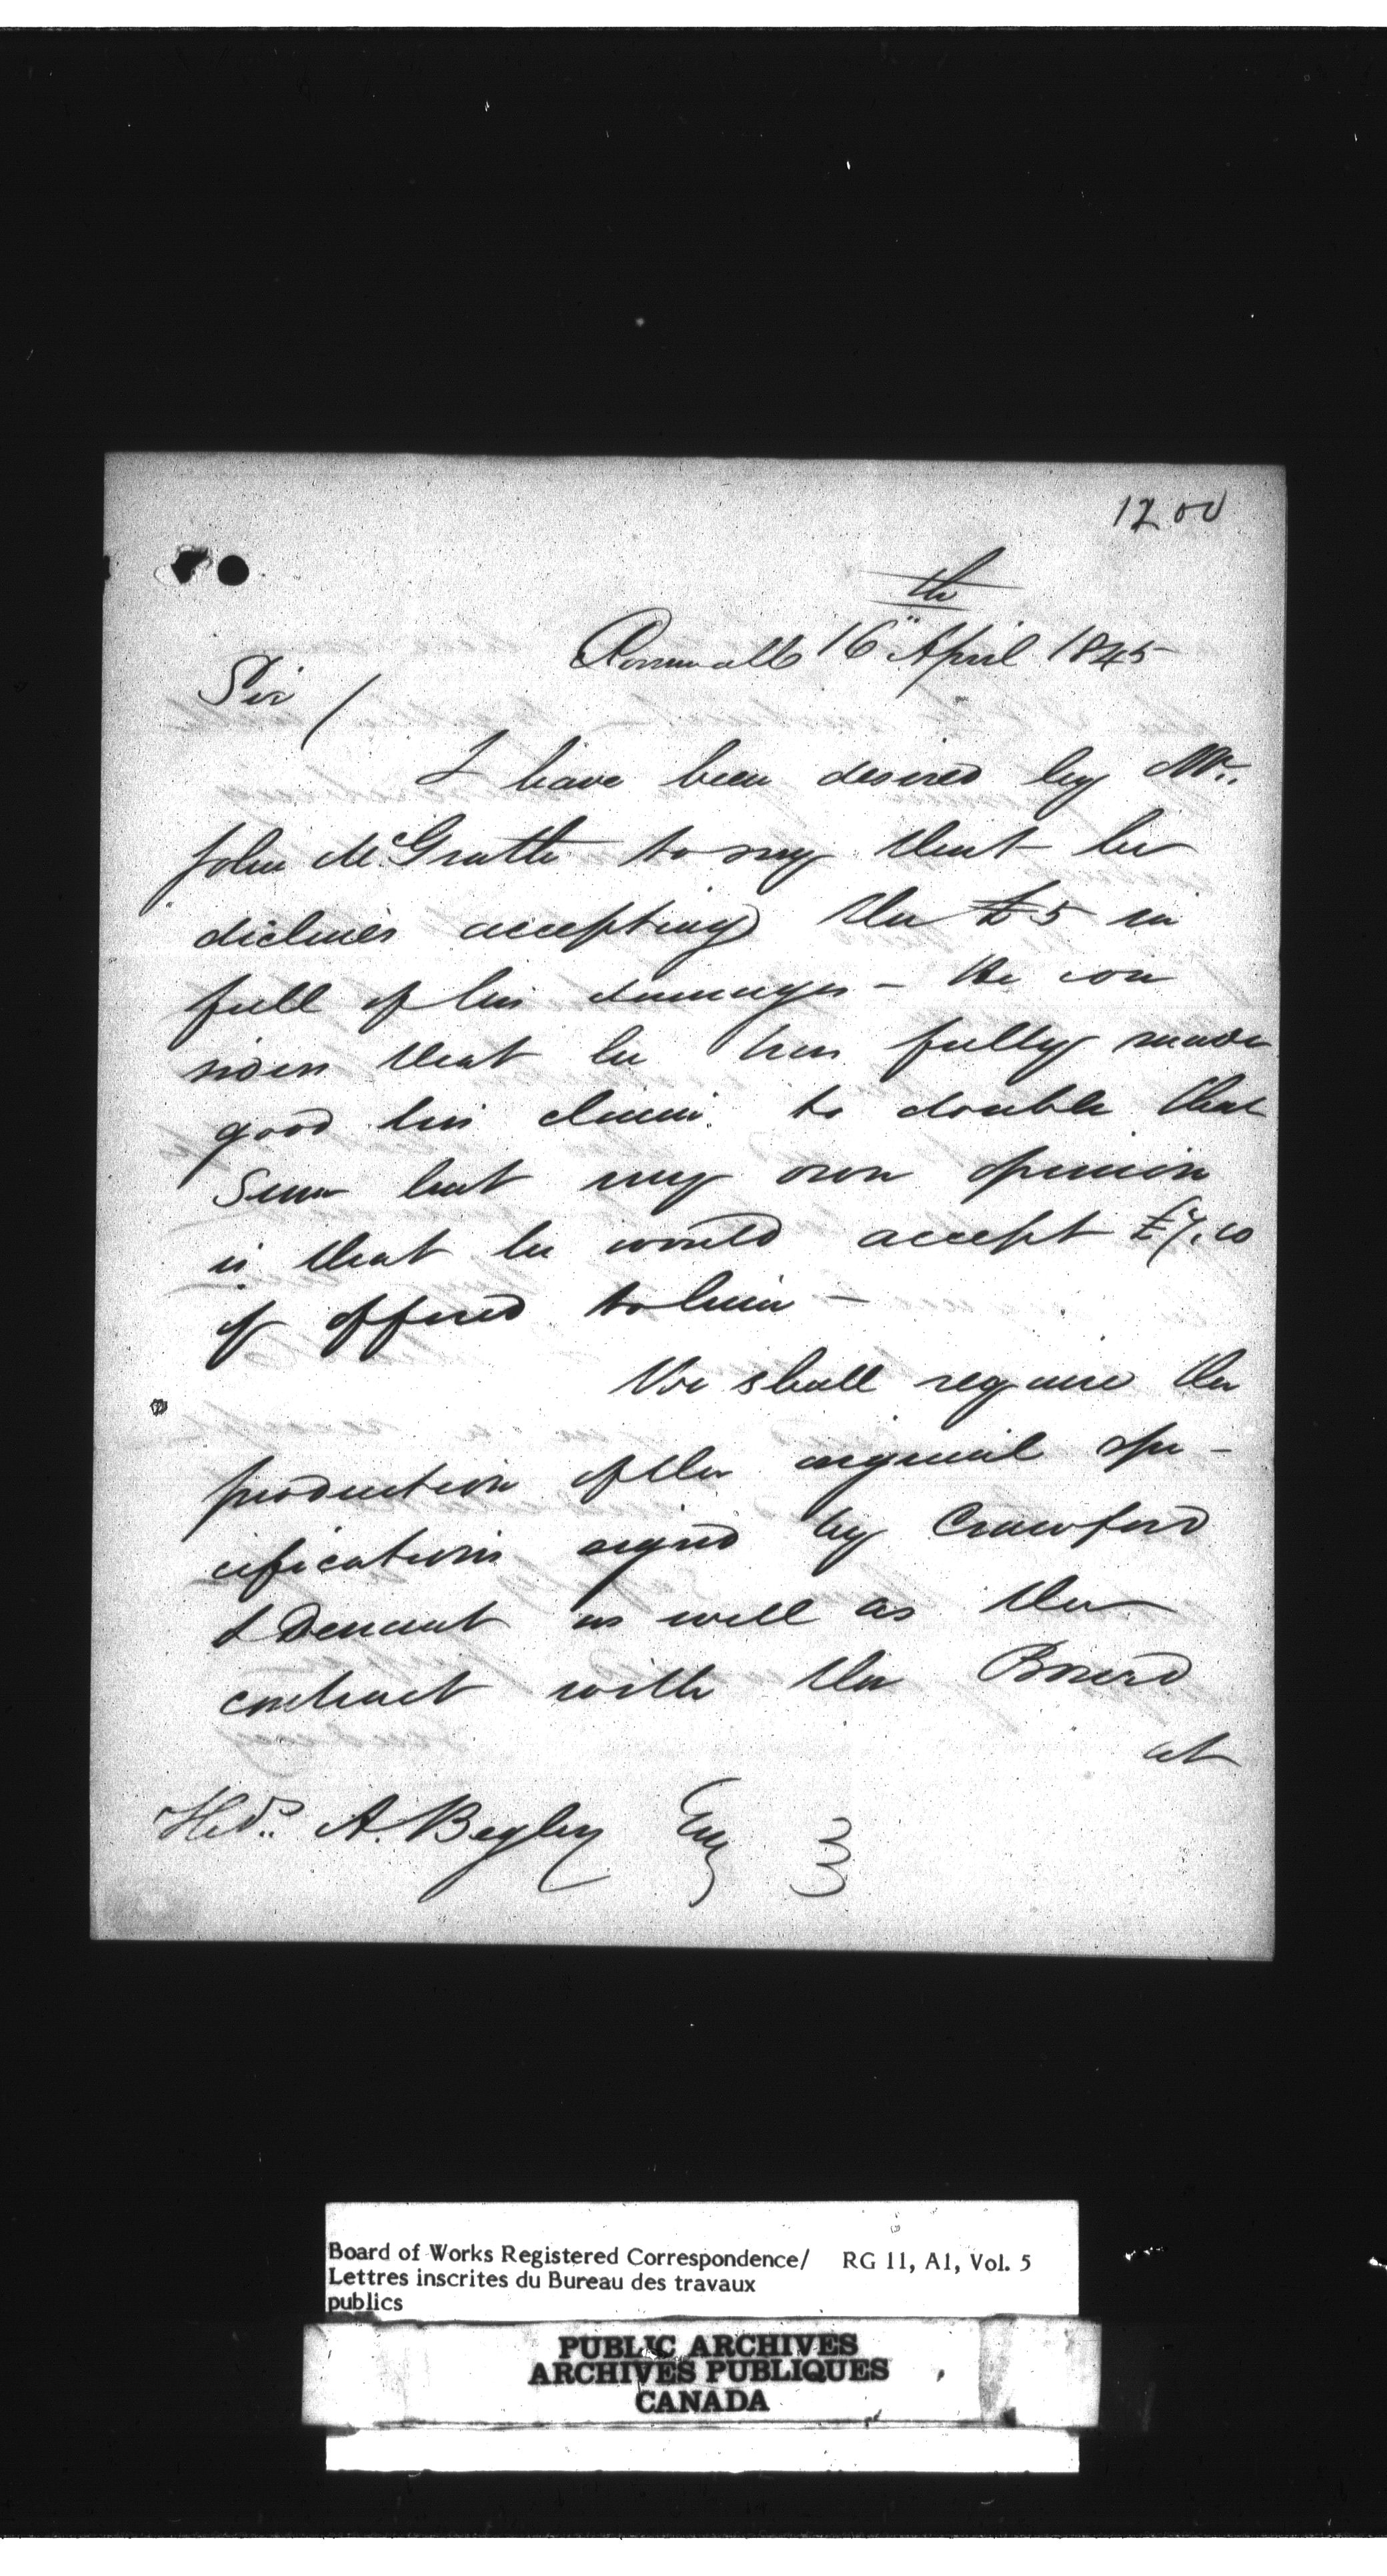 1200
Cornwall 16th April 1845
Sir /
I have been desired by Mr.
John McGrath to say that he
declines accepting the £5 in
full of his damages – He con
siders that he has fully made
good his claim to double that
Sum but my own opinion
is that he would accept £7.10
if offered to him –
We shall require the
production of the original spe-
cifications signed by Crawford
& Denaut as well as the
contract with the Board
at
A. Begley Esq
Board of Works Registered Correspondence/ RG 11, A1, Vol. 5
Lettres inscrites du Bureau des travaux
publics
PUBLIC ARCHIVES
ARCHIVES PUBLIQUES
CANADA